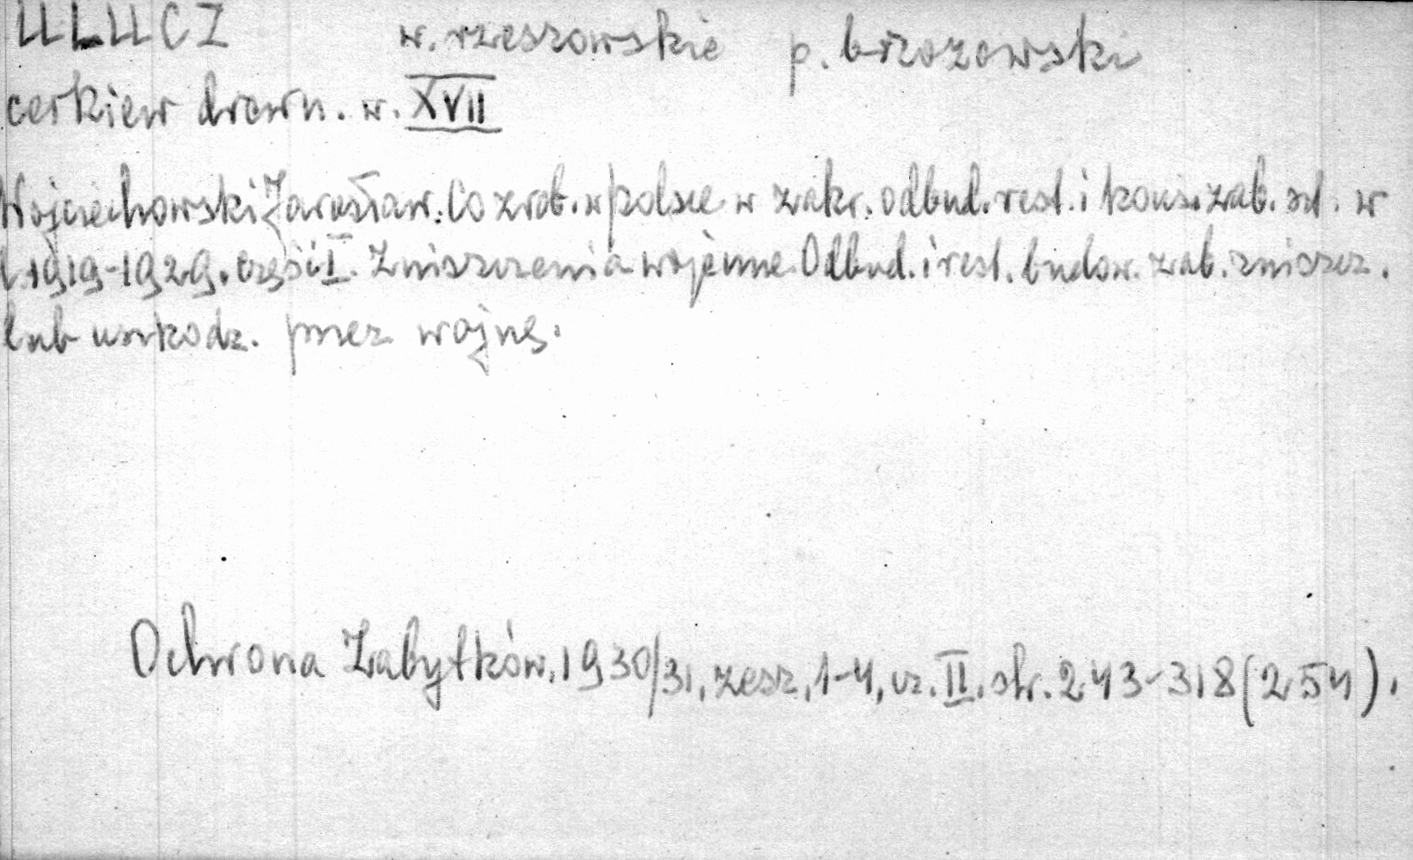 ULUCZ w. rzeszowskie p. brzozowski
cerkiew drewn. w. XVII
Wojciechowski Jarosław. Co zrob. w Polsce w zakr. odbud. rest. i kons. zab. szt. w
l. 1919-1929. część I. Zniszczenia wojenne. Odbud. i rest. budow. zab. zniszcz.
lub uszkodz. przez wojnę.
Ochrona Zabytków, 1930/31, zesz. 1-4, cz. II. str. 243-318 (254).